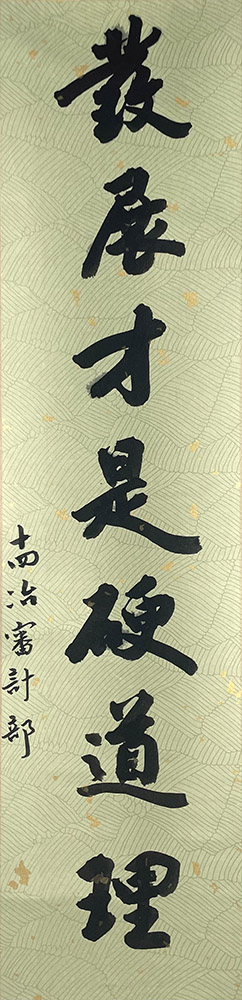 發展才是硬道理
十四冶審計部